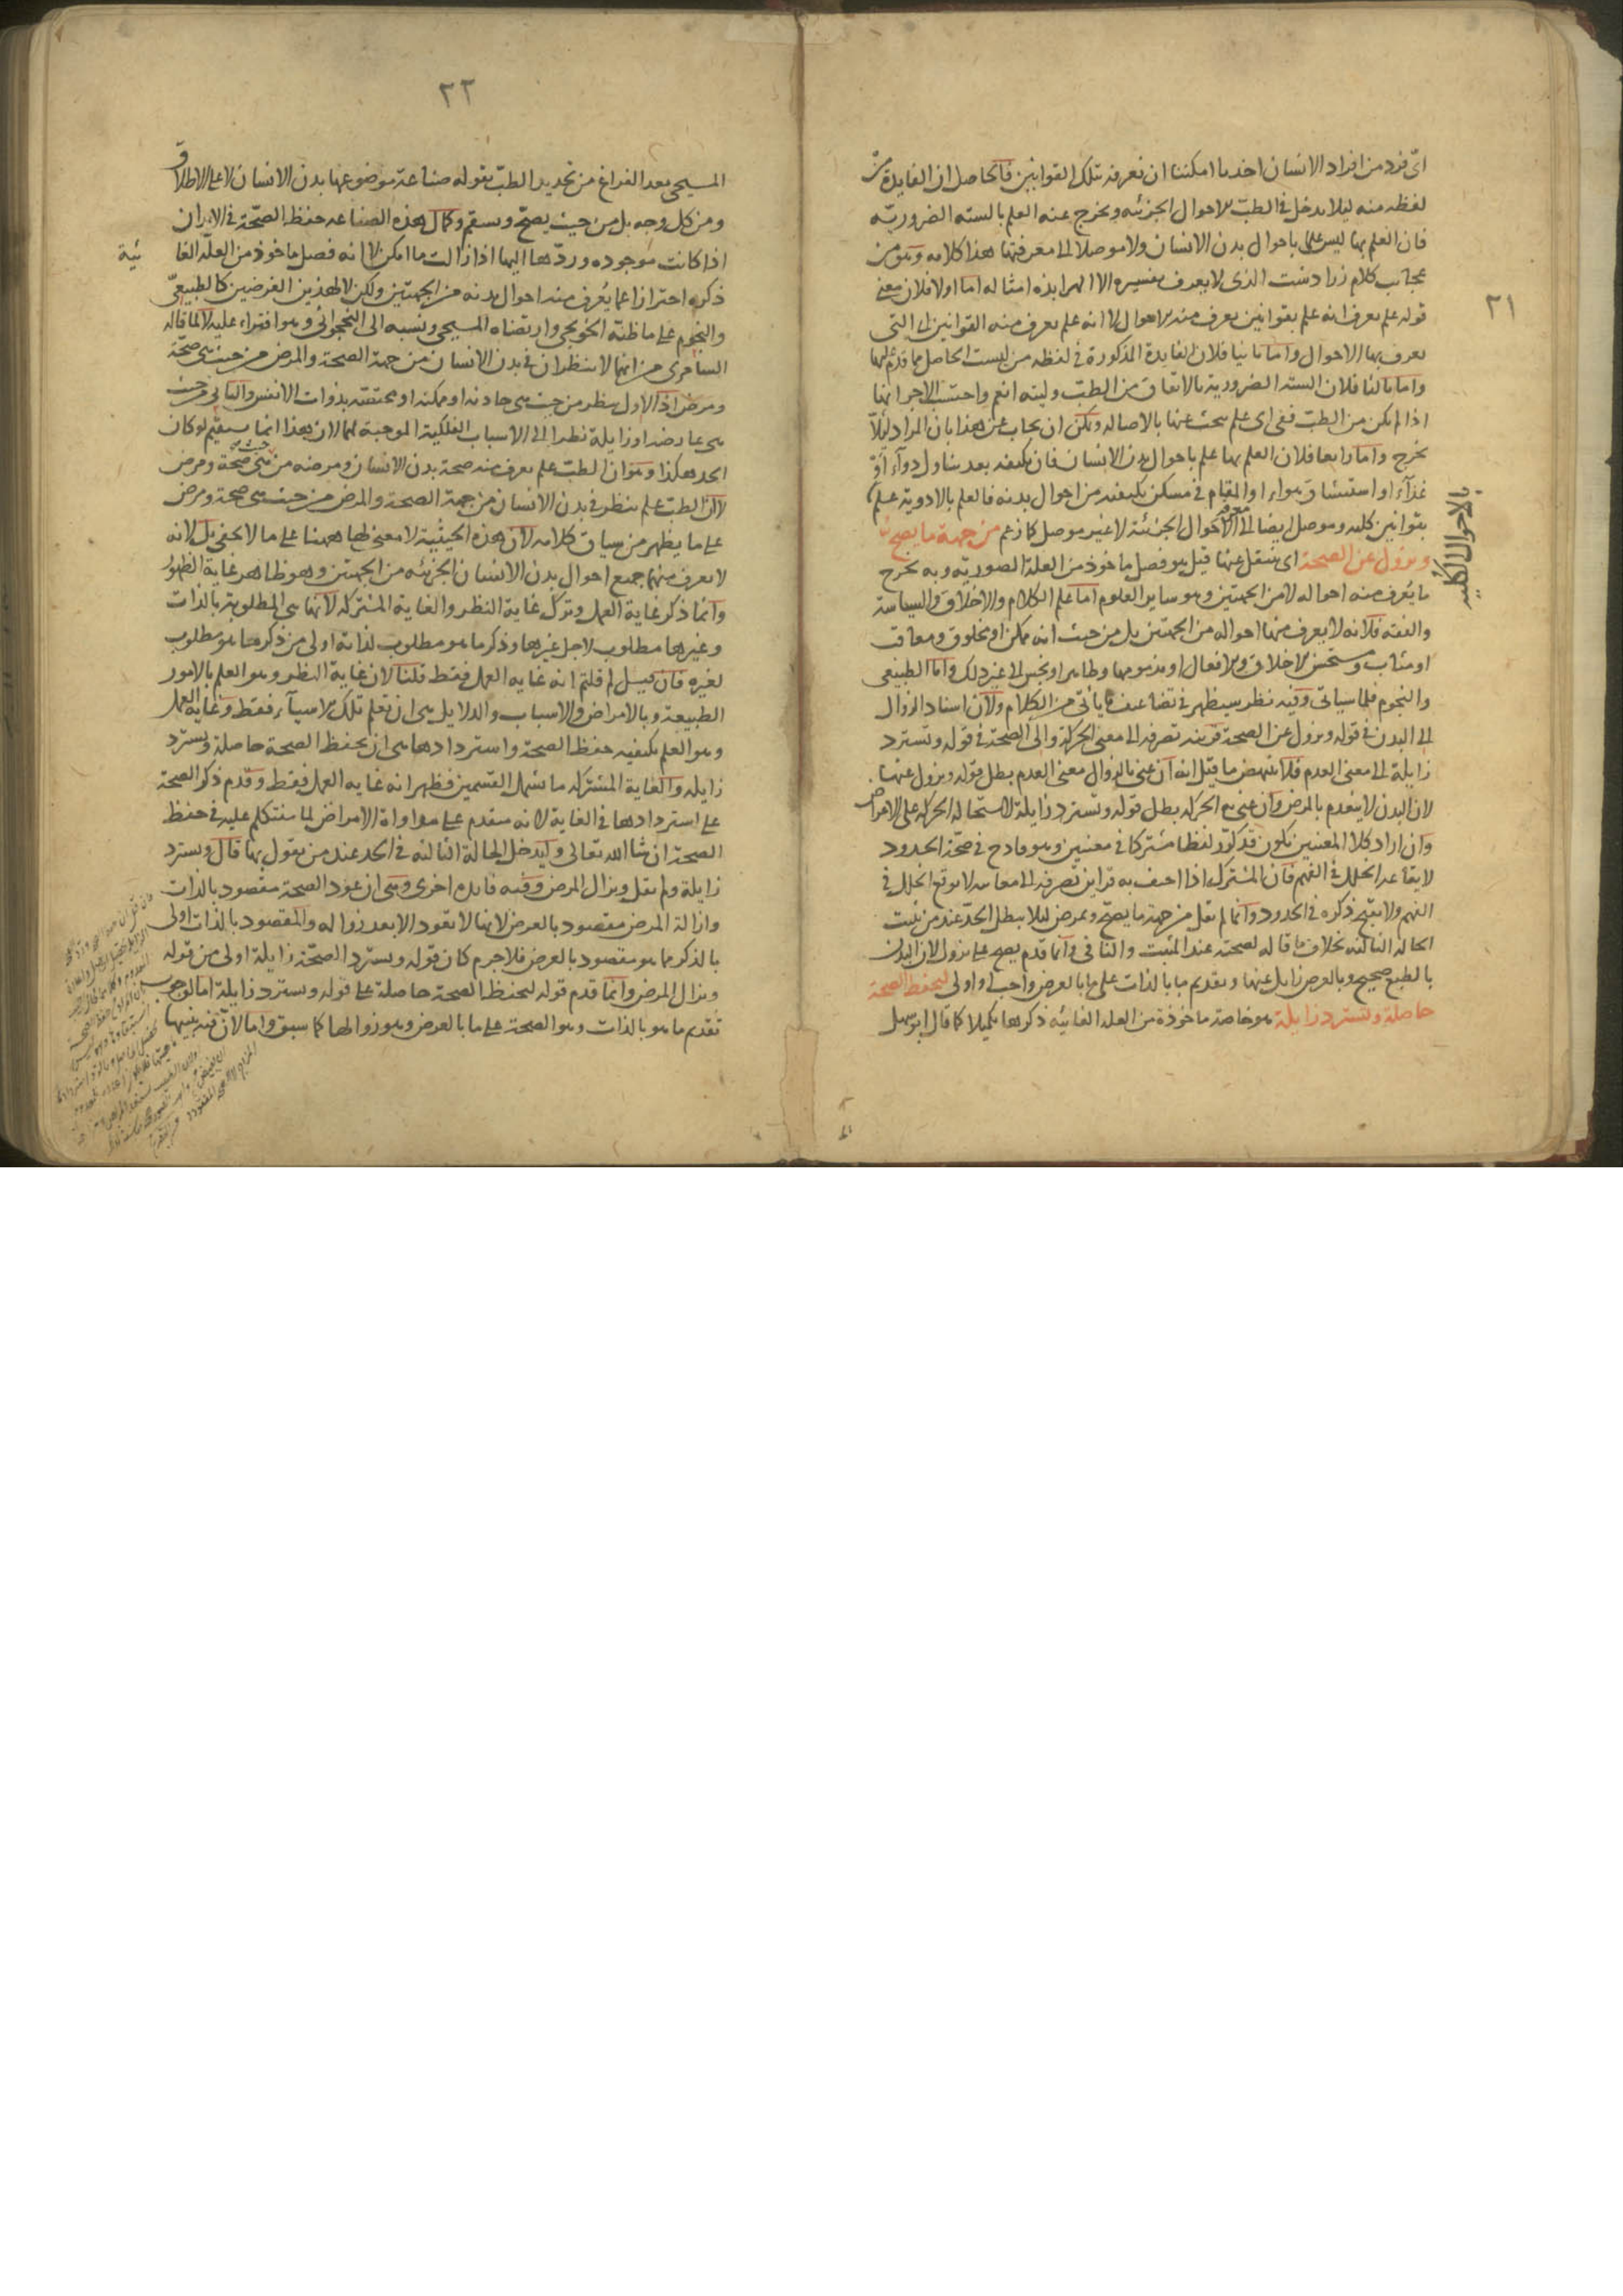 ٢١
اى فرد من افراد الانسان اخذنا امكننا ان نعرفه بتلك القوانين فالحاصل ان الفايدة من
لفظه منه ليلا يدخل فى الطب الاحوال الجزئيه ويخرج عنه العلم بالسته الضروريه
فان العلم بها ليس علما باحوال بدن الانسان ولا موصلا الى معرفتها هذا كلامه وهو من
عجايب كلام زرادشت الذى لا يعرف تفسيره الا الهرابذه امثاله اما اولا فلان معنى
قوله علم يعرف انه علم بقوانين يعرف منه الاحوال لا انه علم يعرف منه القوانين اى التى
يعرف بها الاحوال واما ثانيا فلان الفايدة المذكورة فى لفظه من ليست الحاصل مما قدم لها
واما ثالثا فلان الستة الضرورية بالاتفاق من الطب وليته انعم واحتسب الاجر انها
اذا لم يكن من الطب ففى اى علم يبحث عنها بالاصاله ويمكن ان يجاب عن هذا بان المراد لئلا
يخرج واما رابعا فلان العلم بها علم باحوال بدن الانسان فان تكيفه بعد تناول دوآء او
غذآء او استنشاق هواء او المقام فى مسكن تكيفه من احوال بدنه فالعلم بالادوية علم
بقوانين كليه وموصل ايضا الى معرفة الاحوال الجزئية لا غير موصل كما زعم من جهة ما يصح
بالاحوال الكلية
ويزول عن الصحة اى ينتقل عنها قيل هو فصل ماخوذ من العلة الصوريه وبه يخرج
ما يعرف منه احواله لا من الجهتين وهو ساير العلوم اما علم الكلام والاخلاق والسياسة
والفقه فلانه لا يعرف منها احواله من الجهتين بل من حيث انه ممكن او مخلوق ومعاقب
او مثاب ومستحسن الاخلاق والافعال او مذمومها وطاهر او نجس الى غير ذلك واما الطبيعى
والنجوم فلما سياتى وفيه نظر سيظهر فى تضاعيف ما ياتى من الكلام ولان اسناد الزوال
الى البدن فى قوله ويزول عن الصحة قرينة تصرفه الى معنى الحركة والى الصحة فى قوله وتسترد
زايلة الى معنى العدم فلا ينهض ما قيل انه ان عنى بالزوال معنى العدم بطل قوله ويزول عنها
لان البدن لا ينعدم بالمرض وان عنى به الحركة بطل قوله وتسترد زايلة لاستحالة الحركة على الاعراض
وان اراد كلا المعنيين يكون قد كرر لفظا مشتركا فى معنيين وهو قادح فى صحة الحدود
لايقاعه الخلل فى الفهم فان المشترك اذا احتف به قراين تصرفه الى معانيه لا يوقع الخلل فى
الفهم ولا يقبح ذكره فى الحدود وانما لم يقل من جهة ما يصح ويمرض ليلا يبطل الحد عند من يثبت
الحالة الثالثة بخلاف ما قاله لصحته عند المثبت والنافى وانما قدم يصح على يزول لان البدن
بالطبع صحيح وبالعرض زايل عنها وتقديم ما بالذات على ما بالعرض واجب او اولى لتحفظ الصحة
حاصلة وتسترد زايلة هو خاصة ماخوذة من العلة الغائيه ذكرها تكميلا كما قال ابو سهل
٢٢
المسيحى بعد الفراغ من تحديد الطب بقوله صناعة موضوعها بدن الانسان لا على الاطلاق
ومن كل وجه بل من حيث يصح ويسقم وكمال هذه الصناعه حفظ الصحة فى الابدان
اذا كانت موجوده وردها اليها اذا زالت ما امكن لا انه فصل ماخوذ من العلة الغائية
ذكره احترازا عما يعرف منه احوال بدنه من الجهتين ولكن لا لهذين الغرضين كالطبيعى
والنجوم على ما ظنه الخونجى وارتضاه المسيحى ونسبه الى النخجوانى وهو افتراء عليه لا لما قاله
السامرى من انهما لا ينظران فى بدن الانسان من جهة الصحة والمرض من حيث هى صحة
ومرض اذ الاول ينظر من حيث هى حادثة او ممكنة او مختصة بذوات الانفس والثانى من حيث
هى عارضة او زايلة نظرا الى الاسباب الفلكية الموجبة لهما لان هذا انما يستقيم لو كان
الحد هكذا وهو ان الطب علم يعرف منه صحة بدن الانسان ومرضه من حيث هى صحة ومرض
لان الطب علم ينظر فى بدن الانسان من جهة الصحة والمرض من حيث هى صحة ومرض
على ما يظهر من سياق كلامه لان هذه الحيثية لا معنى لها ههنا على ما لا يخفى بل لانه
لا يعرف منهما جميع احوال بدن الانسان الجزئيه من الجهتين وهو ظاهر غاية الظهور
وانما ذكر غاية العمل وترك غاية النظر والغاية المشتركه لانها هى المطلوبة بالذات
وغيرها مطلوب لاجل غيرها وذكر ما هو مطلوب لذاته اولى من ذكر ما هو مطلوب
لغيره فان قيل لم قلتم انه غايه العمل فقط قلنا لان غاية النظر وهو العلم بالامور
الطبيعة وبالامراض والاسباب والدلايل هى ان تعلم تلك الاشيآء فقط وغايه العمل
وهو العلم بكيفيه حفظ الصحة واستردادها هى ان يحفظ الصحة حاصلة ويسترد
زايله والغاية المشتركه ما يشمل القسمين فظهر انه غايه العمل فقط وقدم ذكر الصحة
على استردادها فى الغاية لانه متقدم على مداواة الامراض لما سنتكلم عليه فى حفظ
الصحة ان شا الله تعالى وليدخل الحالة الثالثه فى الحد عند من يقول بها قال ويسترد
زايلة ولم يقل ويزال المرض وفيه فايدة اخرى وهى ان عود الصحة مقصود بالذات
وازالة المرض مقصود بالعرض لانها لا تعود الا بعد زواله والمقصود بالذات اولى
بالذكر مما هو مقصود بالعرض فلا جرم كان قوله ويسترد الصحة زايلة اولى من قوله
ويزال المرض وانما قدم قوله لتحفظ الصحة حاصلة على قوله ويسترد زايلة اما لوجوب
تقديم ما هو بالذات وهو الصحة على ما بالعرض وهو زوالها كما سبق واما لان فيه تنبيها